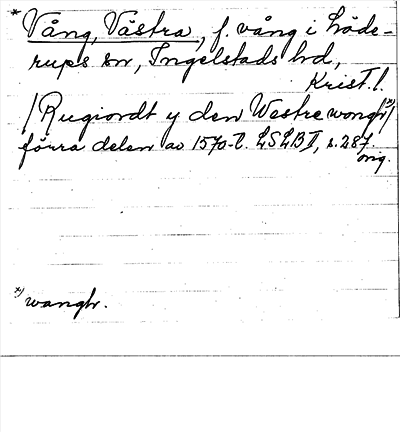 * Vång, Västra, f. vång i Löde-
rups sn, Ingelstads hd,
Krist. l.
/Rugiordt y den Westre wongh x)/
förra delen av 1570-t. LSLB II, s. 287
orig.
x) wangh.